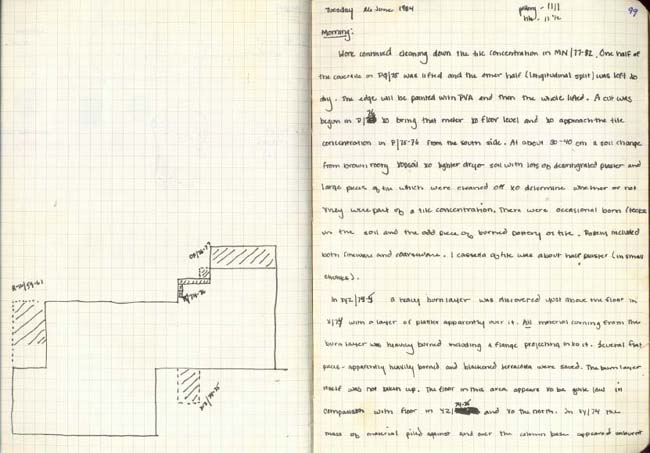 Tuesday 26 June 1984
pottery - 11/1
tile - 11 1/2
99
Morning:
Work continued cleaning down the tile concentration in MN/77-82. One half of
the coarseware in PQ/75 was lifted and the other half (longitudinal split) was left to
dry. The edge will be painted with PVA and then the whole lifted. A cut was
begun in P/76 to bring that meter to floor level and to approach the tile
concentration in P/75-76 from the south side. At about 30-40 cm a soil change
from brown rooty topsoil to lighter dryer soil with lots of disintegrated plaster and
large pieces of tile which were cleaned off to determine whether or not
they were part of a tile concentration. There were occasional burn flecks
in the soil and the odd piece of burned pottery or tile. Pottery included
both fineware and coarseware. 1 cassetta of tile was about half plaster (in small
chunks).
In XYZ/74-5 a heavy burn layer was discovered just above the floor in
X/74 with a layer of plaster apparently over it. All material coming from the
burn layer was heavily burned including a flange projecting into it. Several flat
pieces - apparently heavily burned and blackened terracotta were saved. The burn layer
itself was not taken up. The floor in this area appears to be quite low in
comparison with floor in YZ/74-75 and to the north. In XY/74 the
mass of material piled against and over the column base appeared unburnt